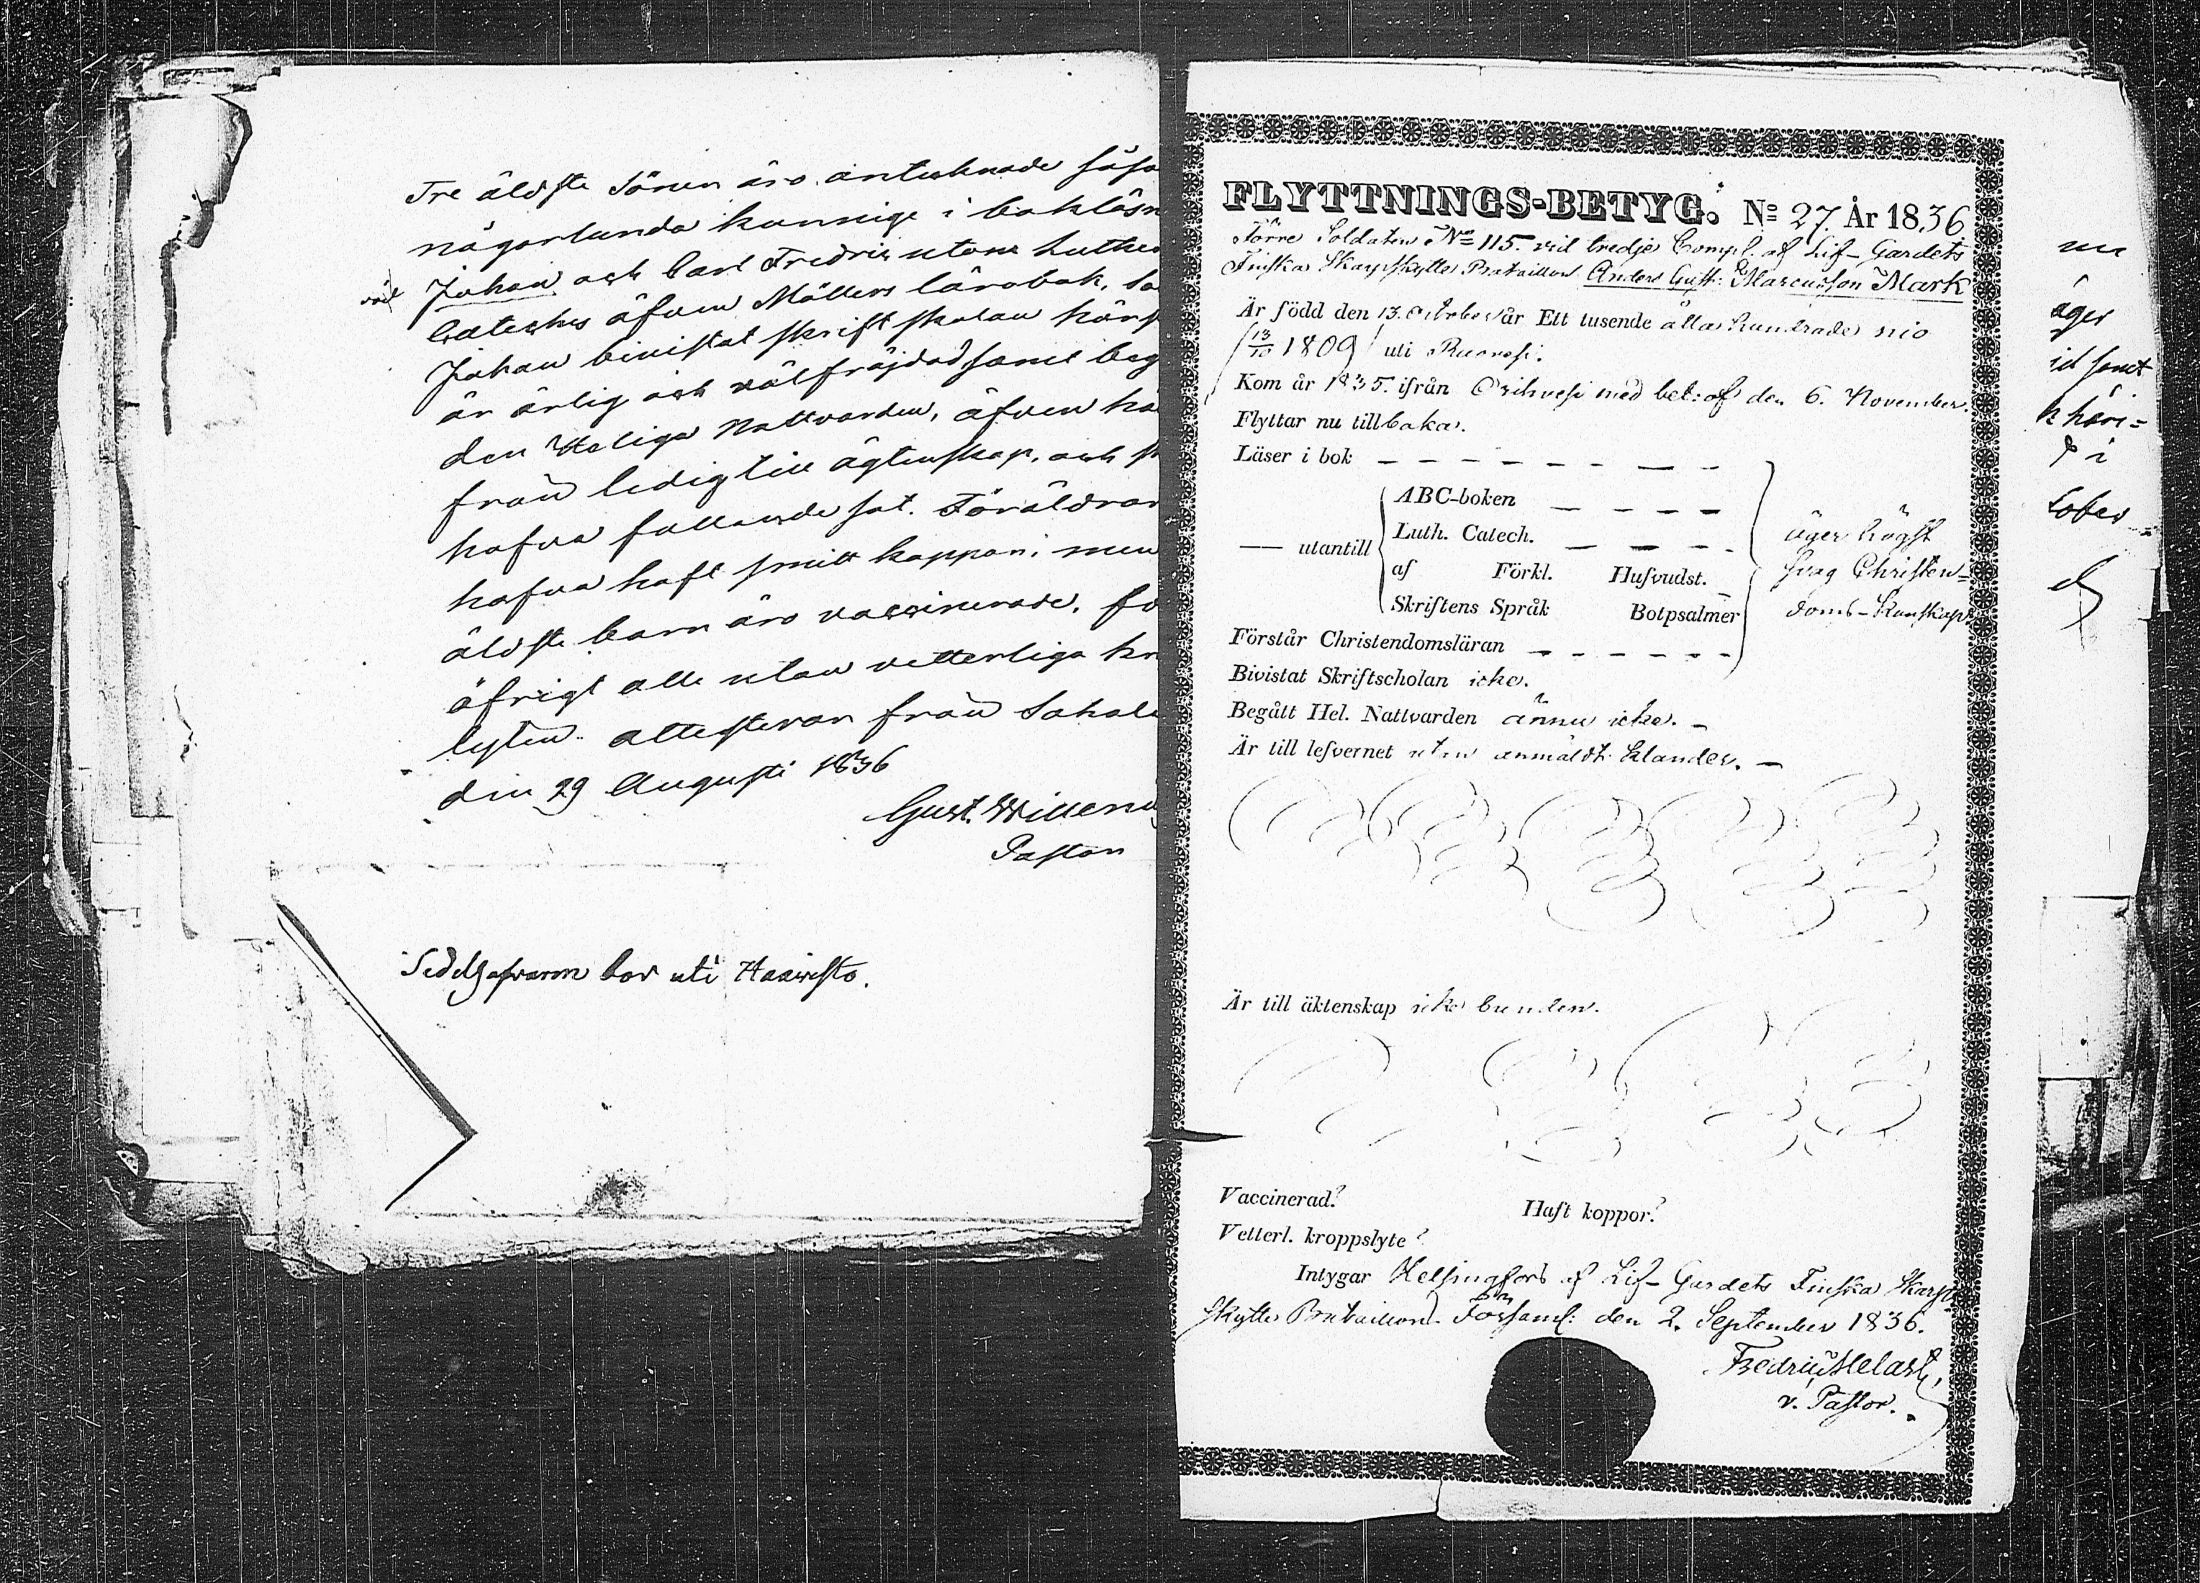 Tre äldste Sönen äro antecknade såso
någorlunda kunnige i bokläsn
väl Johan och Carl Fredric utom Luthe
Cateches äfven Möllers lärobok, so
Johan bivistat skriftskolan hörs
är ärlig och välfräjdad samt beg
den Heliga Nattvarden, äfven hä
från ledig till ägtenskap, och
hafva fullande sat. Föräldrar
hafva haft smitt koppor, men
äldste barn äro vaccinerade, fö
öfrigt alle utan vetterliga kr
lyten. attesterar från Sahal
den 29 Augusti 1836
Gust. Willen
Pastor
Sedelhafvaren bor uti Haavisto.
FLYTTNINGS-BETYG. No 27. År 1836
Förre Soldaten No 115. vid tredje Comp. af Lif-Gardets
Finska Skarpskytte Bataillon Anders Gust: Marcusson Mark
Är född den 13. October år Ett tusende åtta hundrade nio
(13/10 1809) uti Ruovesi.
Kom år 1835. ifrån Orihvesi med bet: af den 6. November.
Flyttar nu tillbaka.
Läser i bok – – – – – – – –
ABC-boken – – – –
— utantill Luth. Catech. – – – –
äger högst
af Förkl. Hufvudst.
svag Christen-
Skriftens Språk Botpsalmer
doms-Kunskap
Förstår Christendomsläran – – – – – –
Bivistat Skriftscholan icke.
Begått Hel. Nattvarden ännu icke. –
Är till lefvernet utan anmäldt klander. –
Är till äktenskap icke bunden.
Vaccinerad? Haft koppor?
Vetterl. kroppslyte?
Intygar Helsingfors af Lif-Gardets Finska Skarp-
skytte Bataillons Församl: den 2. September 1836.
Fredric
v. Pastor.
äger
id samt
k häri-
d i
tober